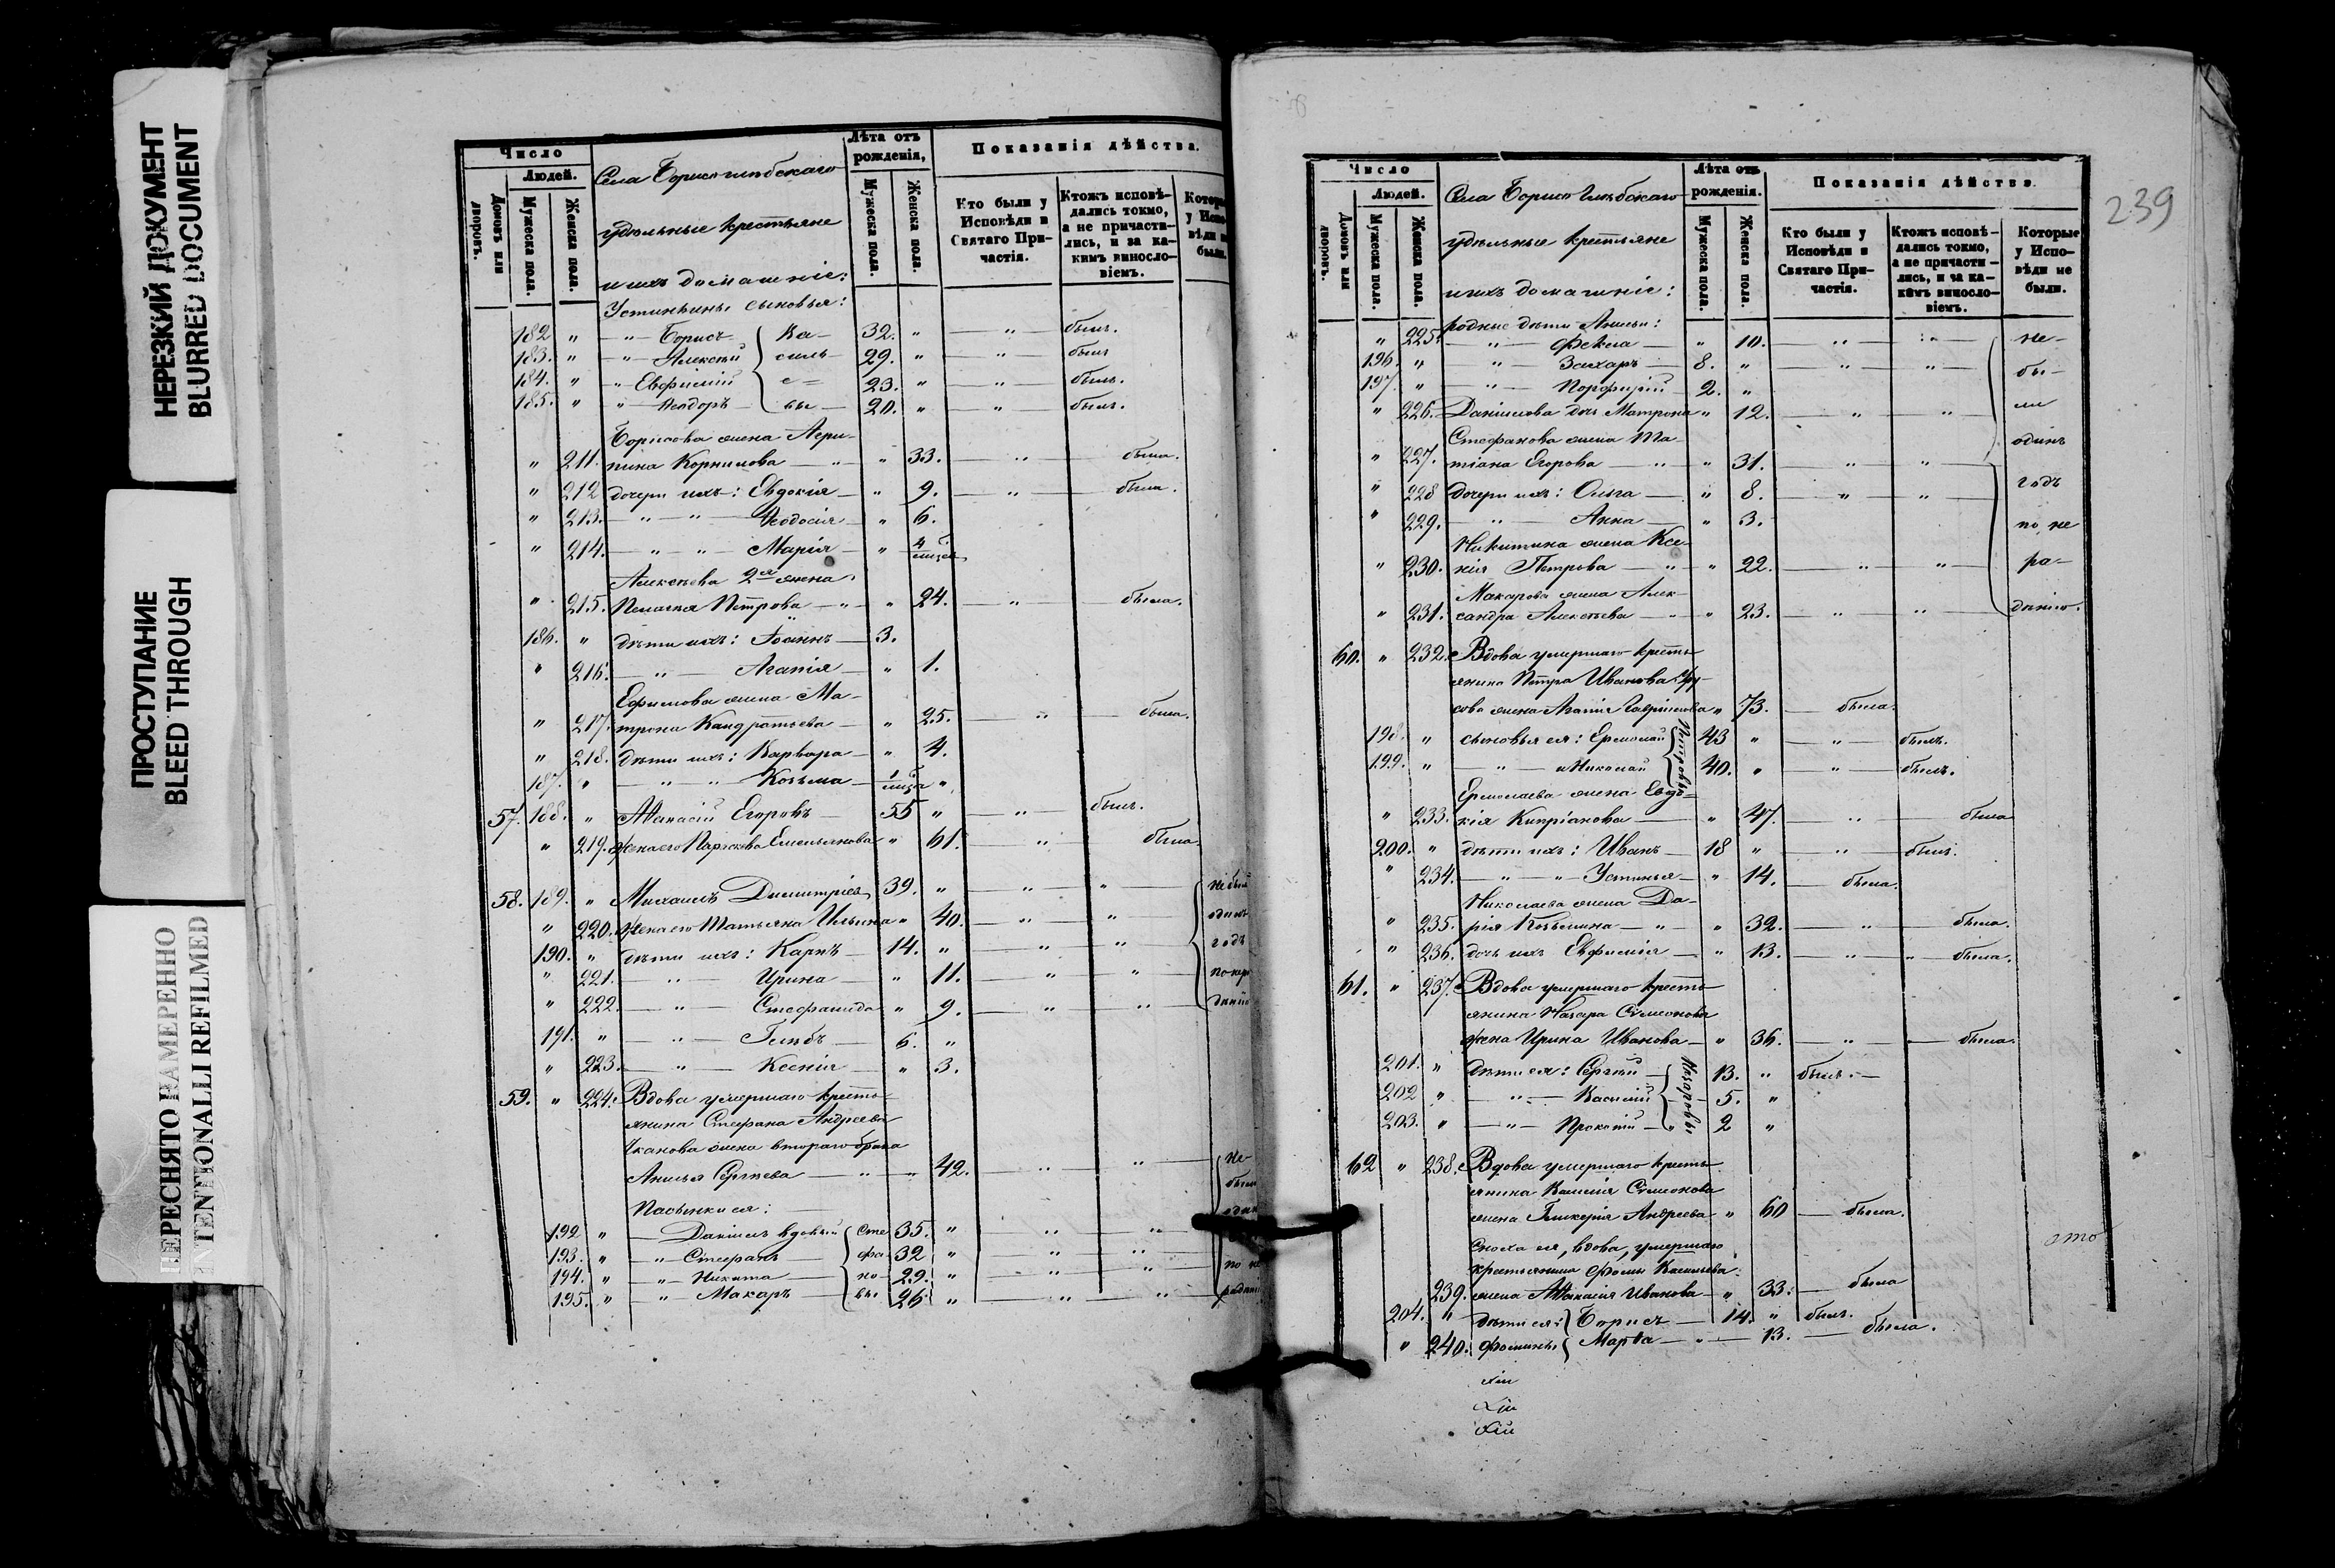 НЕРЕЗКИЙ ДОКУМЕНТ
BLURRED DOCUMENT
ПРОСТУПАНИЕ
BLEED THROUGH
ПЕРЕСНЯТО НАМЕРЕННО
INTENTIONALLI REFILMED
Число
Людей.
Домовъ или дворовъ.
Мужеска пола.
Женска пола.
Села Борисоглѣбскаго
удѣльные крестьяне
и ихъ домашніе:
Лѣта отъ рожденія,
Мужеска пола.
Женска пола.
Показанія дѣйства.
Кто были у Исповѣди и Святаго Причастія.
Ктожъ исповѣдались токмо, а не причастились, и за какимъ винословіемъ.
Устиньины сыновья:
182 " — " — Борисъ { Ва — 32. " — " — былъ.
183. " — " — Алексѣй силь 29. " — " — былъ
184. " " Евфимій е = 23. " " — былъ.
185. " " — Ѳеодоръ — вы — 20. " " — былъ.
Борисова жена Агри-
" 211. пина Корнилова — " — " 33. — " — была.
" 212 дочери ихъ: Евдокія — " 9. — " — была.
" 213. — " — " — Ѳеодосія — " 6.
" 214. — " — " — Марія — " 4
Алексѣева 2я жена
" 215. Пелагея Петрова — " — " 24. — " — была.
186. " дѣти ихъ: Іоаннъ — 3.
" 216. — " — Агапія — " 1.
Ефимова жена Ма-
" 217. трона Кандратьева — " 25. — " — была.
" 218. дѣти ихъ: Варвара — " 4.
187. " — " — " — Козьма — 1 "
57. 188. " Аѳанасій Егоровъ — 55 " — " — былъ.
" 219. жена его Параскева Емельянова " 61. " — была.
58. 189. " Михаилъ Димитріевъ 39. " — " — " — { не был
" 220. жена его Татьяна Ильина " 40. — " — " — одинъ
190. " дѣти ихъ: Карпъ — 14. " — " — " — годъ
" 221. — " — Ирина — " 11. — " — "
" 222. — " — Стефанида " 9. — " — "
191. " — " — Глѣбъ — 6. "
" 223. — " — Ксенія — " 3.
59. " 224. Вдова умершаго кресть-
янина Стефана Андреева
жена втораго брака
Анисья Сергѣева — " — " 42. — " — " — { не-
Пасынки ея: —
192 " — Даніилъ вдовый { Сте 35. " " — "
193. " — " — Стефанъ фа- 32 " " — "
194. " — " — Никита — но 29. " " — "
195. " — " — Макаръ — вы 26 " — " — "
239
Число
Людей.
Домовъ или дворовъ.
Мужеска пола.
Женска пола.
Села Борисоглѣбскаго
удѣльные крестьяне
и ихъ домашніе:
Лѣта отъ рожденія.
Мужеска пола.
Женска пола.
Показанія дѣйства.
Кто были у Исповѣди и Святаго Причастія.
Ктожъ исповѣдались токмо, а не причастились, и за какимъ винословіемъ.
Которые у Исповѣди не были.
родные дѣти Анисьи:
" 225. — " — Фекла — " 10. — " — " — не-
196. " — " — Захаръ — 8. " — " — " — бы-
197. " — " — Порфирій 2. "
" 226. Даніилова дочь Матрона " 12. — " — " — ли
Стефанова жена Та- одинъ
" 227. тіана Егорова — " — " 31. — " — "
" 228 дочери ихъ: Ольга — " 8. — " — " годъ
" 229. — " — Анна — " 3. по не
Никитина жена Ксе-
" 230. нія Петрова — " — " 22. — " — " ра-
Макарова жена Алек-
" 231. сандра Алексѣева — " — " 23. — " — " дѣнію.
60. " 232. Вдова умершаго кресть-
янина Петра Иванова
жена Агапія Гавріилова " 73. — была.
198. " сыновья ея: Ермолай { Петровы 43 " — " — былъ.
199. " — " — и Николай 40. " — " — былъ.
Ермолаева жена Евдо-
" 233. кія Кипріанова — " 47. — " — была
200. " дѣти ихъ: Иванъ — 18 " — " — былъ.
" 234. — " — " — Устинья — " 14. — была.
Николаева жена Да-
" 235. рія Козьмина — " — " 32. — " — была.
" 236. дочь ихъ Евфимія — " 13. — " — " — была.
61. " 237. Вдова умершаго кресть-
янина Назара Сѵмеонова
жена Ирина Иванова — " 36. — " — была.
201. " дѣти ея: Сергѣй — { Назаровы 13. " былъ. —
202 " — " — Василій — 5. "
203. " — " — Прокопій — " 2 "
62 " 238. Вдова умершаго кресть-
янина Василія Сѵмеонова
жена Гликерія Андреева " 60 — была.
Сноха ея, вдова, умершаго
крестьянина Фомы Васильева
239. жена Аѳанасія Иванова — " 33. — была
204. " дѣти ея: { Борисъ — 14. " былъ.
" 240. Фомины { Марѳа — " — 13. — была.
это